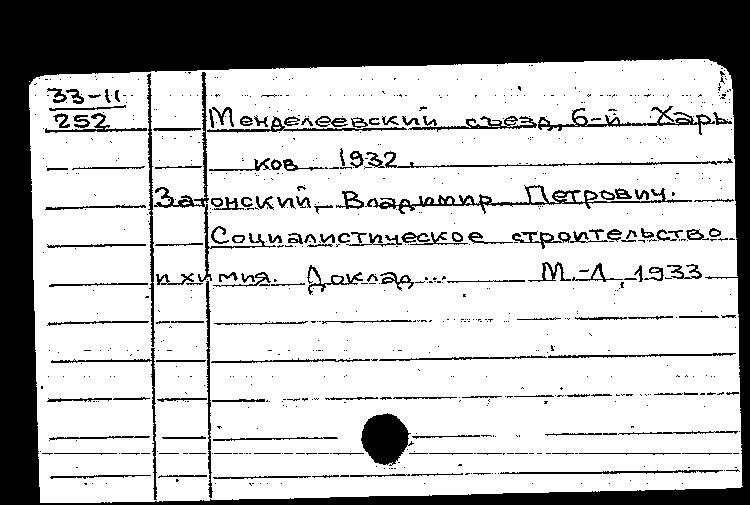 33-11
252
Менделеевский съезд, 6-й Харь
ков. 1932.
Затонский, Владимир Петрович.
Социалистическое строительство
и химия. Доклад... М.-Л., 1933